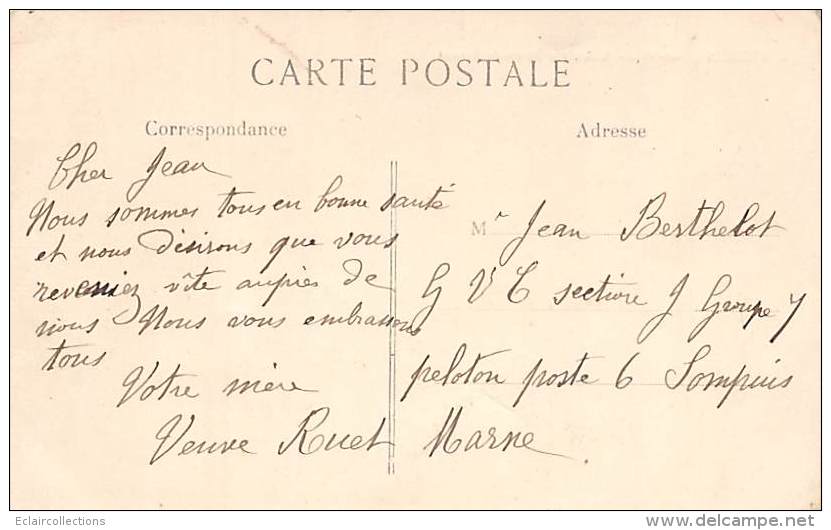 CARTE POSTALE
Correspondance
Cher Jean
Nous sommes tous en bonne santé
et nous désirons que vous
reveniez vite auprès de
nous Nous vous embrassons
tous
Votre mère
Veuve Ruet
Adresse
Mr Jean Berthelot
G V C section J Groupe 7
peloton poste 6 Sompuis
Marne
Eclaircollections
delcampe.net